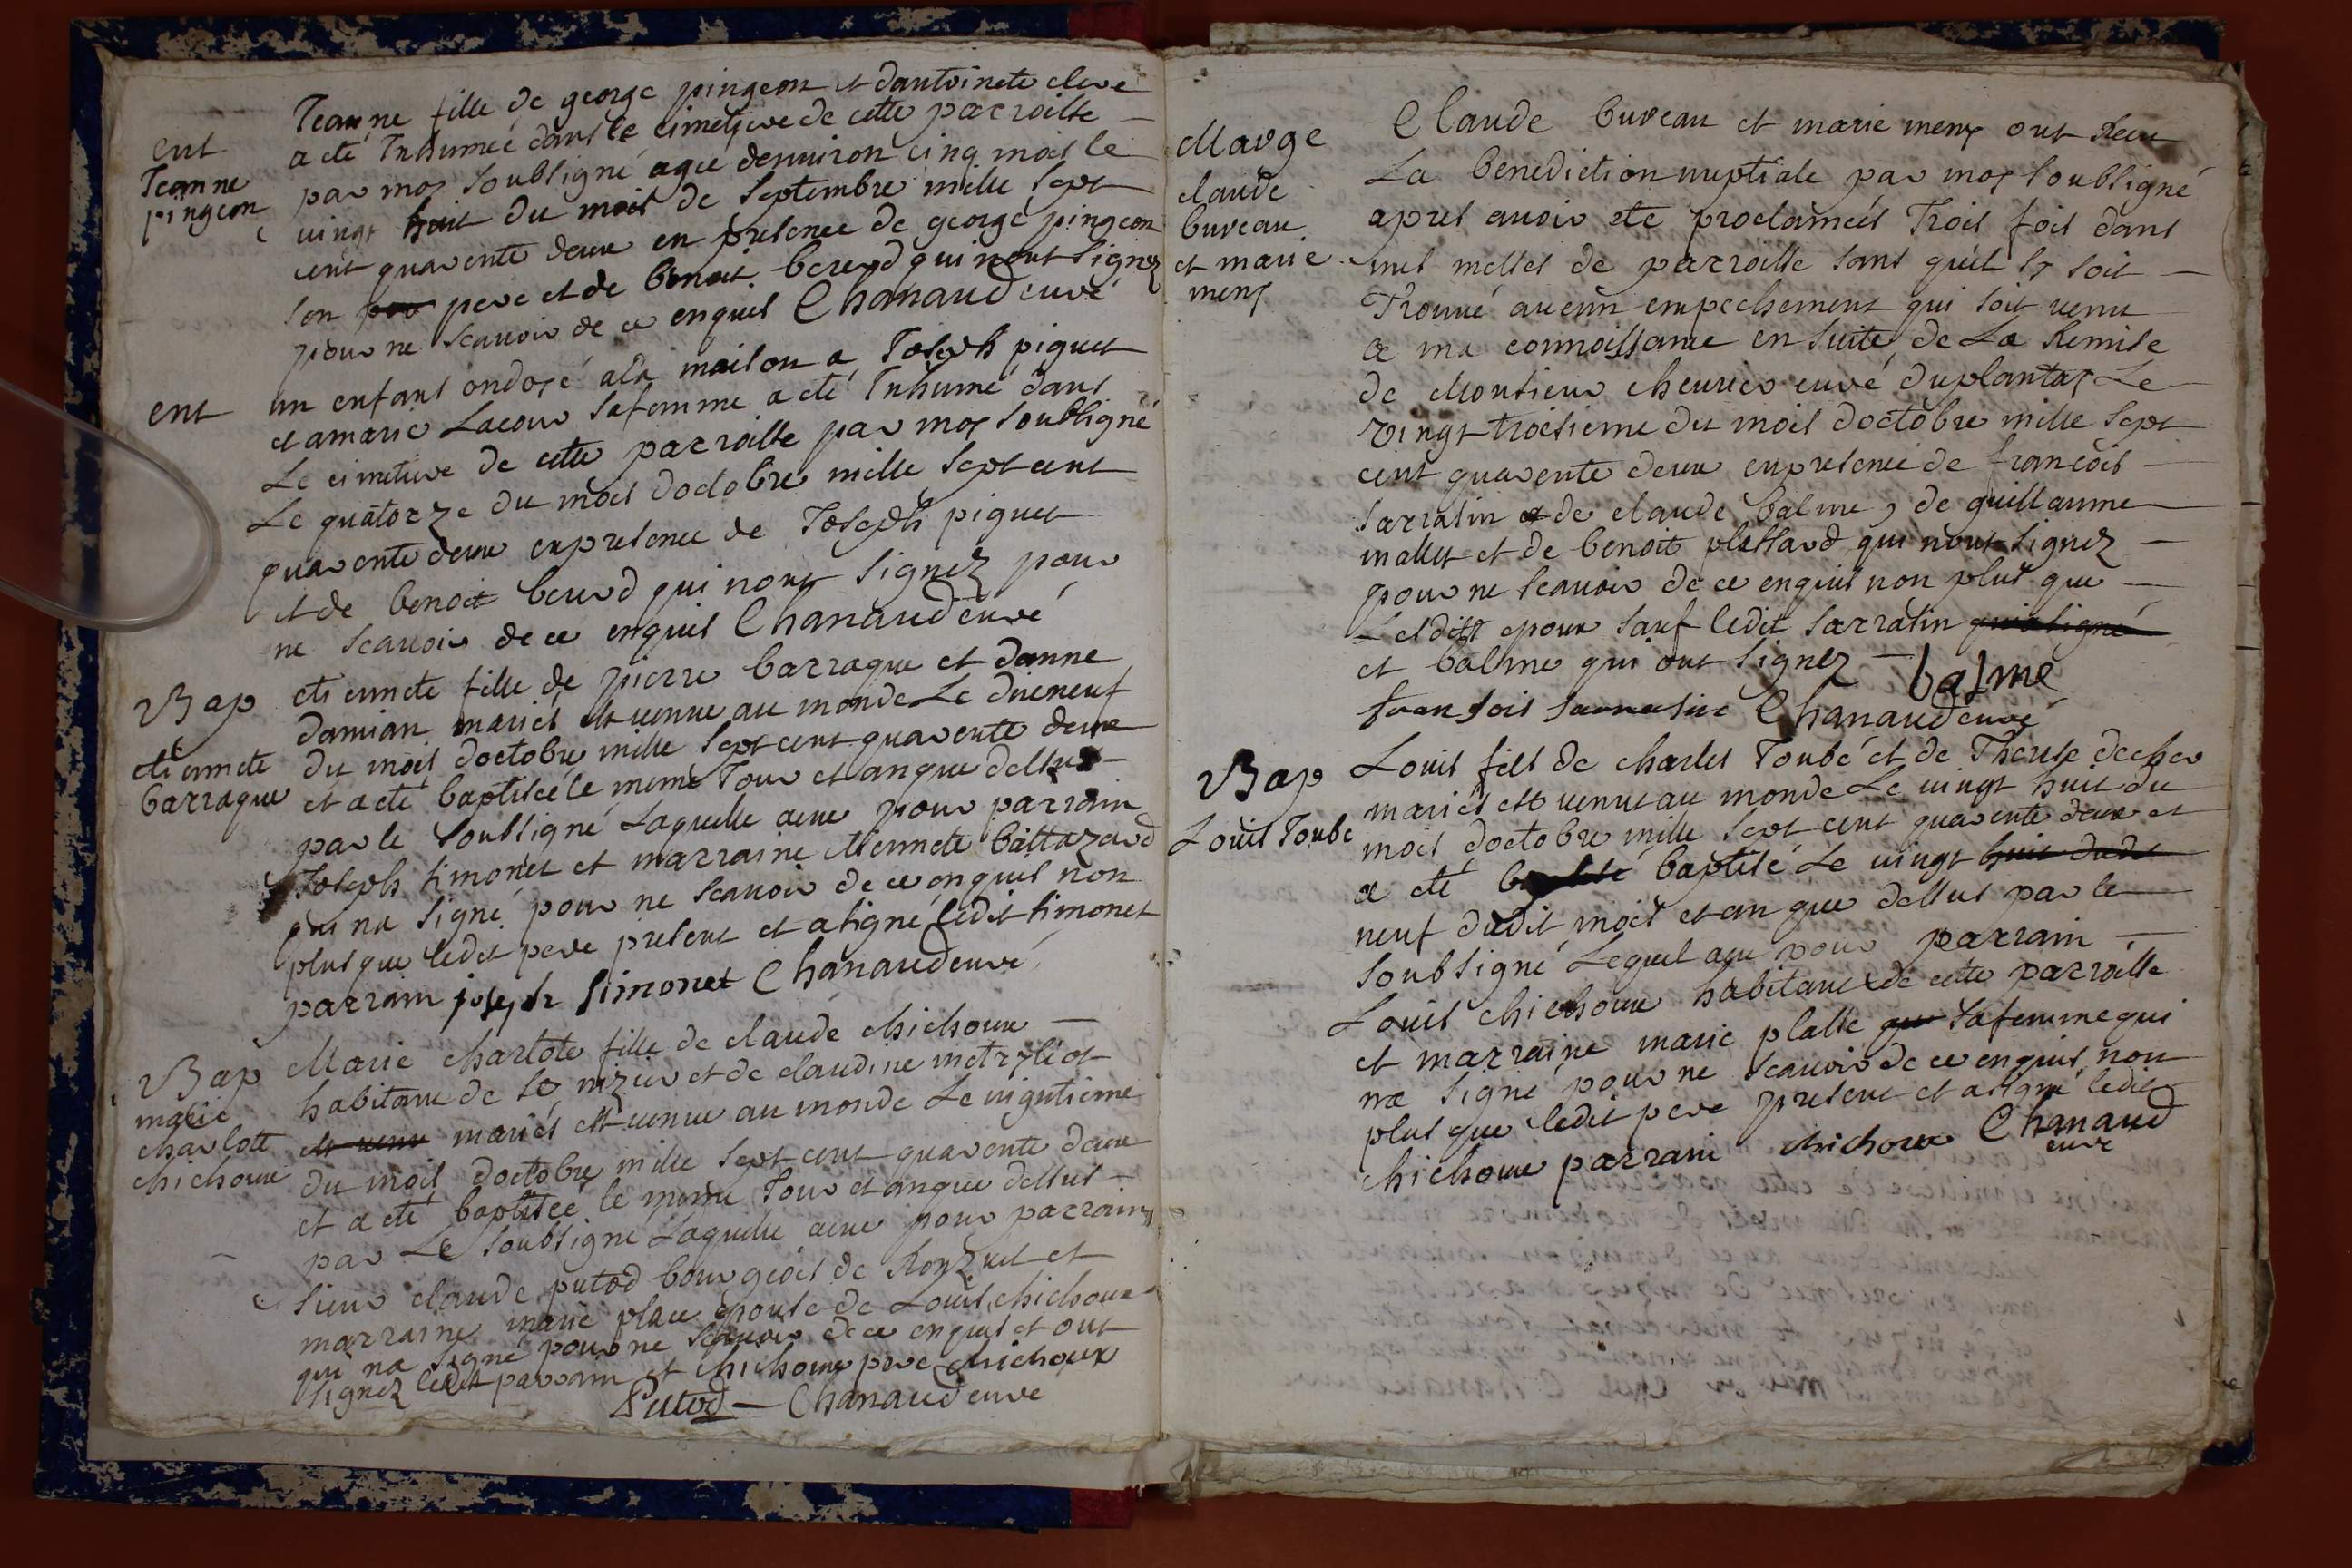 Jeanne fille de george pingeon et dantoinete clere
ent
a eté Inhumée dans le cimetiere de cette parroisse
Jeanne
par moy soubsigné agée denuiron cinq mois le
pingeon
uingt huit du mois de septembre mille sept
cent quarente deux en presence de george pingeon
son pere et de benoit bererd qui nont signez
pour ne scauoir de ce enquis Chanaud curé
ent
un enfant ondoyé ala maison a Joseph piquet
et a marie Lacour sa femme a eté Inhumé dans
Le cimetiere de cette parroisse par moy soubsigné
Le quatorze du mois doctobre mille sept cent
quarente deux en presence de Joseph piquet
et de benoit berерd qui nont signez pour
ne scauoir de ce enquis Chanaud curé
Bap
etiennete fille de pierre barraque et danne
damian mariés est uenue au monde Le dixneuf
etiennete
du mois doctobre mille sept cent quarente deux
barraque
et a eté baptisée le meme Jour et an que dessus
par le soubsigné Laquelle a eue pour parrain
Joseph simonet et marraine etiennete baltazard
qui na signé pour ne scauoir de ce enquis non
plus que ledit pere present et a signé ledit simonet
parrain joseph simonet Chanaud curé
Bap
Marie charlote fille de claude chichoux
marie
habitant de st nizier et de claudine
charlotte
est uenu mariés est uenue au monde Le uigntième
chichoux
du mois doctobre mille sept cent quarente deux
et a eté baptisée le meme Jour et an que dessus
par Le soubsigné Laquelle a eue pour parrain
sieur claude putod bourgeois de Ronzuel et
marraine marie place epouse de Louis chichoux
qui na signé pour ne scauoir de ce enquis et ont
signez ledit parrain et chichoux pere chichoux
Putod Chanaud curé
Marge
Claude bureau et marie meny ont Receu
La benediction nuptiale par moy soubsigné
claude
apres auoir ete proclamées Trois fois dans
bureau
nos messes de parroisse sans quil sy soit
et marie
Trouué aucun empechement qui soit uenu
meny
a ma connoissance en suite de La Remise
de Monsieur cheurier curé duplantay Le
vingt troisieme du mois doctobre mille sept
cent quarente deux en presence de francois
sarrasin et de claude balme, de guillaume
mallet et de benoit plattard qui nont signez
pour ne scauoir de ce enquis non plus que
lesdits epoux sauf ledit sarrasin qui a signé
et balme qui ont signez balme
fransois sarrasin Chanaud curé
Bap
Louis fils de charles Joube et de Therese decher
mariés est uenu au monde Le uingt huit du
Louis Joube
mois doctobre mille sept cent quarente deux et
a eté baptisé baptisé Le uingt huit dudit
neuf dudit mois et an que dessus par le
soubsigné Lequel a eu pour parrain
Louis chichoux habitant de cette parroisse
et marraine marie plasse qui sa femme qui
na signé pour ne scauoir de ce enquis non
plus que ledit pere present et a signé ledit
chichoux parrain chichoux Chanaud
curé